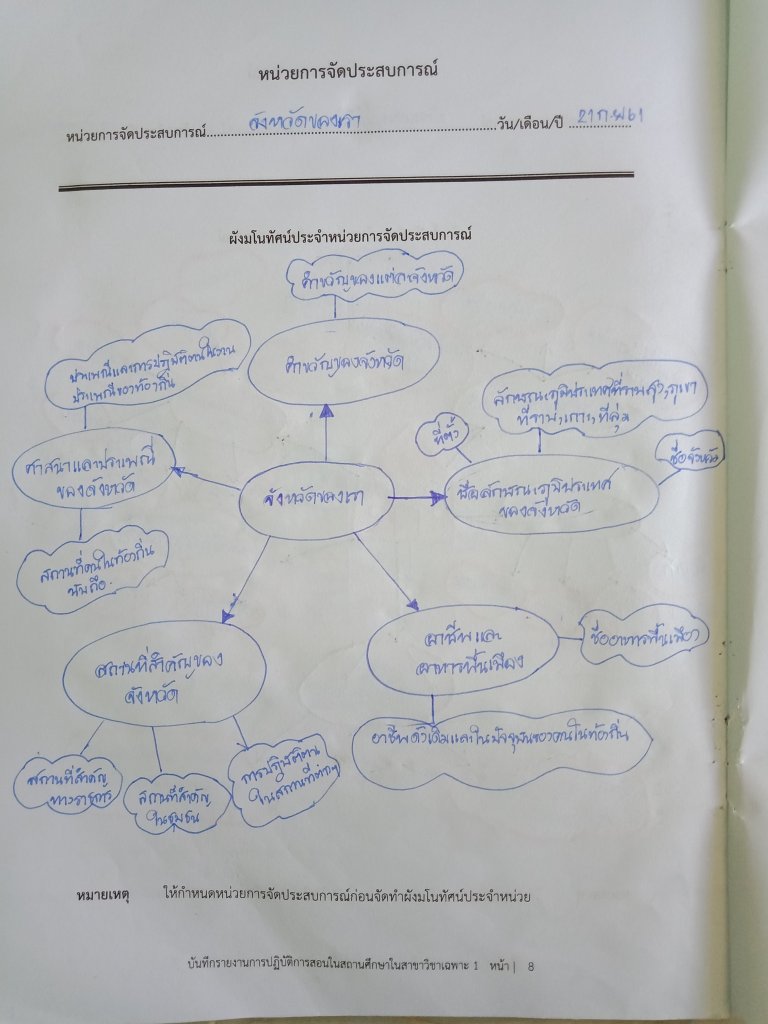 หน่วยการจัดประสบการณ์
หน่วยการจัดประสบการณ์ จังหวัดของเรา วัน/เดือน/ปี 21 ก.พ 61
ผังมโนทัศน์ประจำหน่วยการจัดประสบการณ์
คำขวัญของแต่ละจังหวัด
คำขวัญของจังหวัด
ประเพณีและการปฏิบัติตนในงาน
ประเพณีของท้องถิ่น
ศาสนาและประเพณี
ของจังหวัด
สถานที่คนในท้องถิ่น
นับถือ
จังหวัดของเรา
ที่ตั้ง
ลักษณะภูมิประเทศที่ราบสูง,ภูเขา
ที่ราบ,เกาะ,ที่ลุ่ม
ชื่อจังหวัด
ชื่อลักษณะภูมิประเทศ
ของจังหวัด
สถานที่สำคัญของ
จังหวัด
สถานที่สำคัญ
ทางราชการ
สถานที่สำคัญ
ในชุมชน
การปฏิบัติตน
ในสถานที่ต่างๆ
อาชีพและ
อาหารพื้นเมือง
ชื่ออาหารพื้นเมือง
อาชีพดั้งเดิมและในปัจจุบันของคนในท้องถิ่น
หมายเหตุ ให้กำหนดหน่วยการจัดประสบการณ์ก่อนจัดทำผังมโนทัศน์ประจำหน่วย
บันทึกรายงานการปฏิบัติการสอนในสถานศึกษาในสาขาวิชาเฉพาะ 1 หน้า | 8